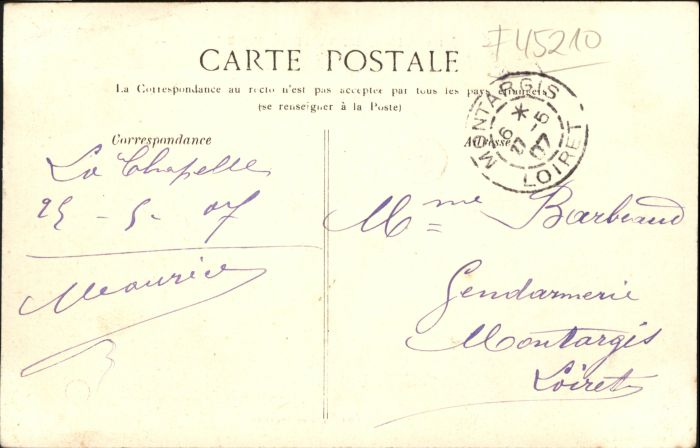 F45210
CARTE POSTALE
La Correspondance au recto n'est pas acceptée par tous les pays étrangers
(se renseigner à la Poste)
Correspondance
Adresse
MONTARGIS
LOIRET
27 -5
07
La Chapelle
25 - 5 - 07
Maurice
Mme Barbeaud
Gendarmerie
Montargis
Loiret